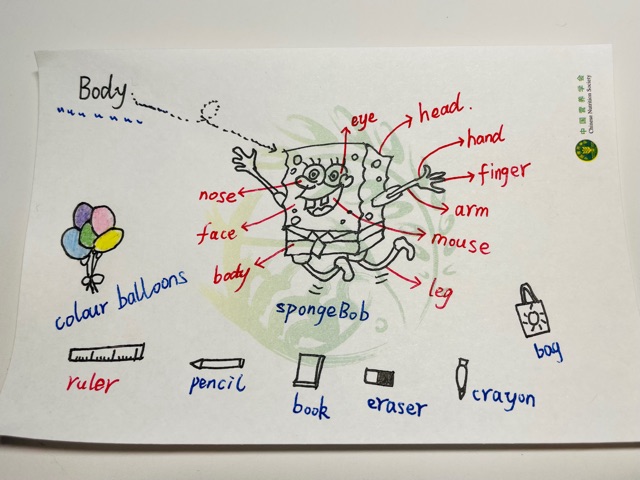 Body
eye
head.
hand
finger
arm
mouse
leg
nose
face
body
spongeBob
colour balloons
bag
ruler
pencil
book
eraser
crayon
中国营养学会
Chinese Nutrition Society